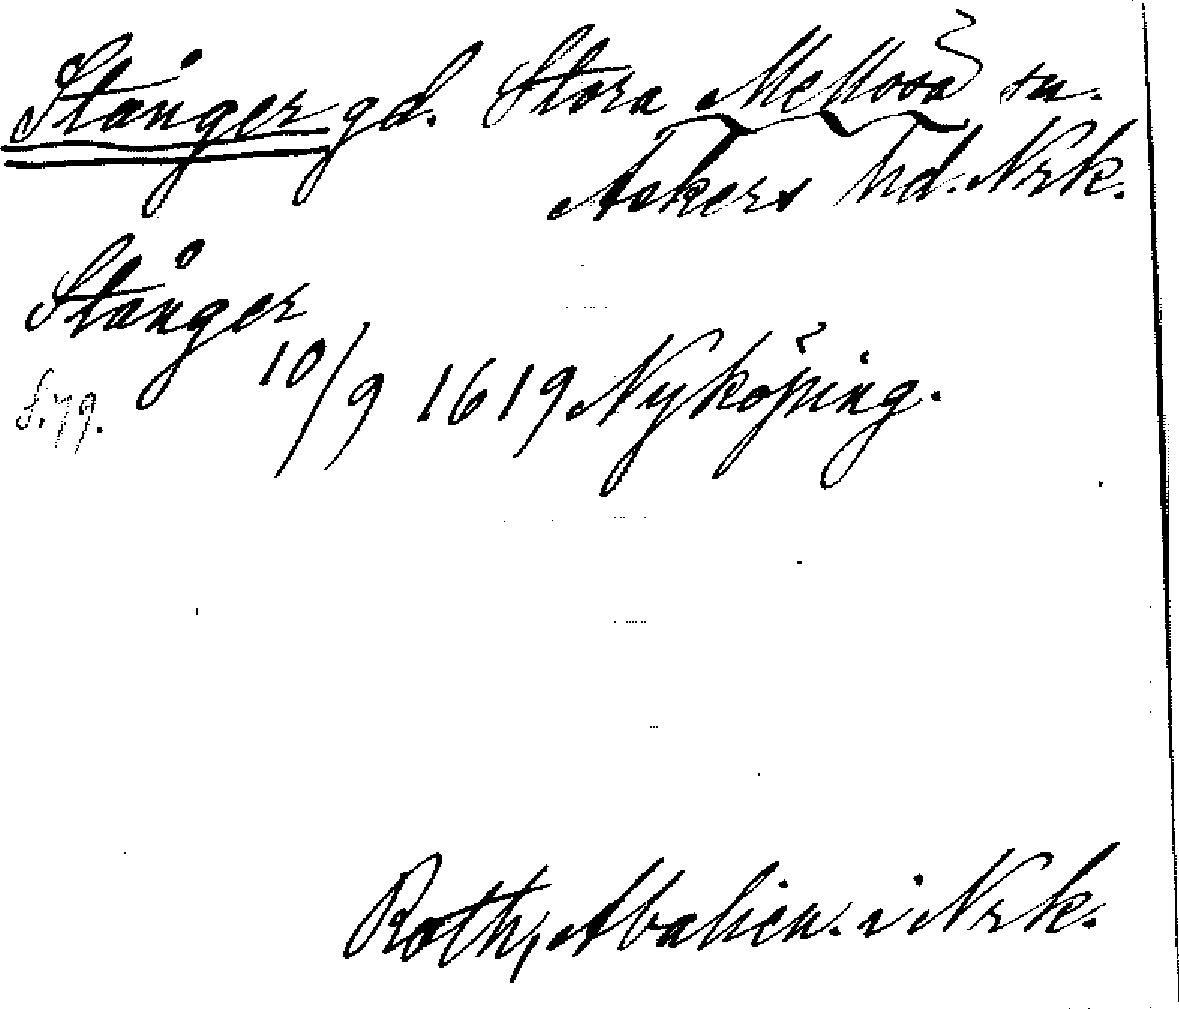 Stånger gd. Stora Mellösa sn.
Askers hd. Nrk.
Stånger
10/9 1619 Nyköping.
S. 79.
Roth, Abalien. i Nrk.